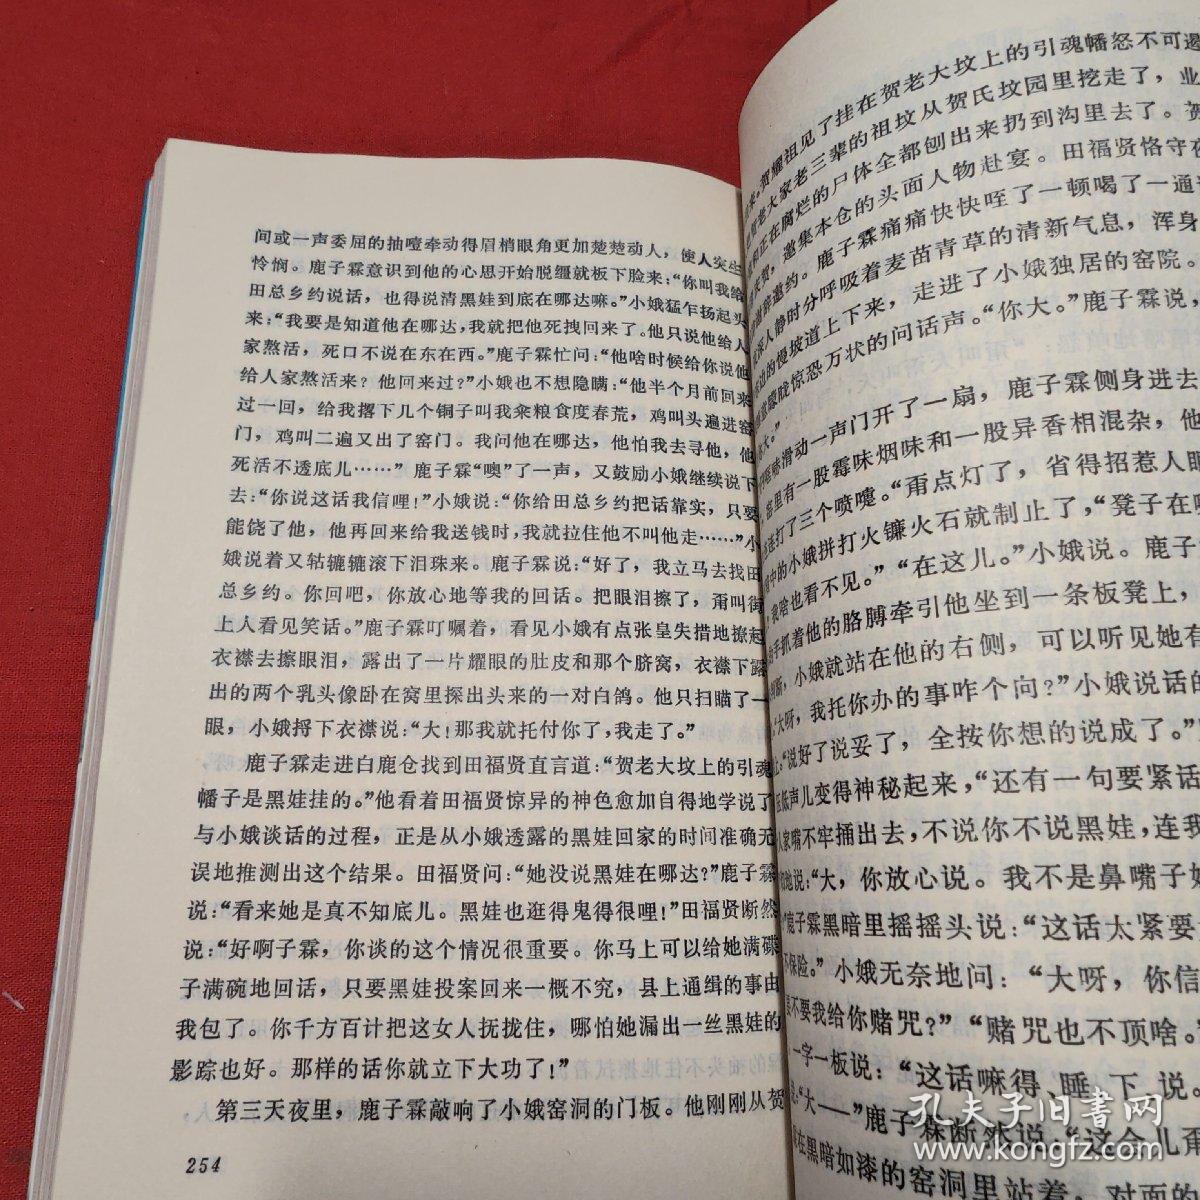 间或一声委屈的抽噎牵动得眉梢眼角更加楚楚动人，使人突生
怜悯。鹿子霖意识到他的心思开始脱缰就板下脸来：“你叫我给
田总乡约说话，也得说清黑娃到底在哪达嘛。”小娥猛乍扬起头
来：“我要是知道他在哪达，我就把他死拽回来了。他只说他给人
家熬活，死口不说在东在西。”鹿子霖忙问：“他啥时候给你说他
给人家熬活来？他回来过？”小娥也不想隐瞒：“他半个月前回来
过一回，给我撂下几个铜子叫我籴粮食度春荒，鸡叫头遍进窑
门，鸡叫二遍又出了窑门。我问他在哪达，他怕我去寻他，他
死活不透底儿……”鹿子霖“噢”了一声，又鼓励小娥继续说下
去：“你说这话我信哩！”小娥说：“你给田总乡约把话靠实，只要
能饶了他，他再回来给我送钱时，我就拉住他不叫他走……”小
娥说着又轱辘辘滚下泪珠来。鹿子霖说：“好了，我立马去找田
总乡约。你回吧，你放心地等我的回话。把眼泪擦了，甭叫街
上人看见笑话。”鹿子霖叮嘱着，看见小娥有点张皇失措地撩起
衣襟去擦眼泪，露出了一片耀眼的肚皮和那个脐窝，衣襟下露
出的两个乳头像卧在窝里探出头来的一对白鸽。他只扫瞄了一
眼，小娥捋下衣襟说：“大！那我就托付你了，我走了。”
鹿子霖走进白鹿仓找到田福贤直言道：“贺老大坟上的引魂
幡子是黑娃挂的。”他看着田福贤惊异的神色愈加自得地学说了
与小娥谈话的过程，正是从小娥透露的黑娃回家的时间准确无
误地推测出这个结果。田福贤问：“她没说黑娃在哪达？”鹿子霖
说：“看来她是真不知底儿。黑娃也逛得鬼得很哩！”田福贤断然
说：“好啊子霖，你谈的这个情况很重要。你马上可以给她满碟
子满碗地回话，只要黑娃投案回来一概不究，县上通缉的事由
我包了。你千方百计把这女人抚拢住，哪怕她漏出一丝黑娃的
影踪也好。那样的话你就立下大功了！”
第三天夜里，鹿子霖敲响了小娥窑洞的门板。他刚刚从贺
254
来。贺耀祖见了挂在贺老大坟上的引魂幡怒不可遏
贺老大家老三辈的祖坟从贺氏坟园里挖走了，业
和正在腐烂的尸体全都刨出来扔到沟里去了。贺
庆贺，邀集本仓的头面人物赴宴。田福贤恪守夜
谢辞邀约。鹿子霖痛痛快快咥了一顿喝了一通
深人静时分呼吸着麦苗青草的清新气息，浑身
东边的慢坡道上下来，走进了小娥独居的窑院。
朦胧惊恐万状的问话声。“你大。”鹿子霖说，
大。”
滑动一声门开了一扇，鹿子霖侧身进去
窑里有一股霉味烟味和一股异香相混杂，他
连打了三个喷嚏。“甭点灯了，省得招惹人眼
中的小娥拼打火镰火石就制止了，“凳子在哪
我啥也看不见。”“在这儿。”小娥说。鹿子
手抓着他的胳膊牵引他坐到一条板凳上，
小娥就站在他的右侧，可以听见她有
“大呀，我托你办的事咋个向？”小娥说话的
“说好了说妥了，全按你想的说成了。”
压低声儿变得神秘起来，“还有一句要紧话
人家嘴不牢捅出去，不说你不说黑娃，连我
地说：“大，你放心说。我不是鼻嘴子
”鹿子霖黑暗里摇摇头说：“这话太紧要
不保险。”小娥无奈地问：“大呀，你信
要不要我给你赌咒？”“赌咒也不顶啥。”
一字一板说：“这话嘛得、睡、下、说。
“大——”鹿子霖断然说：“这会儿甭
在黑暗如漆的窑洞里站着，对面的
孔夫子旧书网
kongfz.com